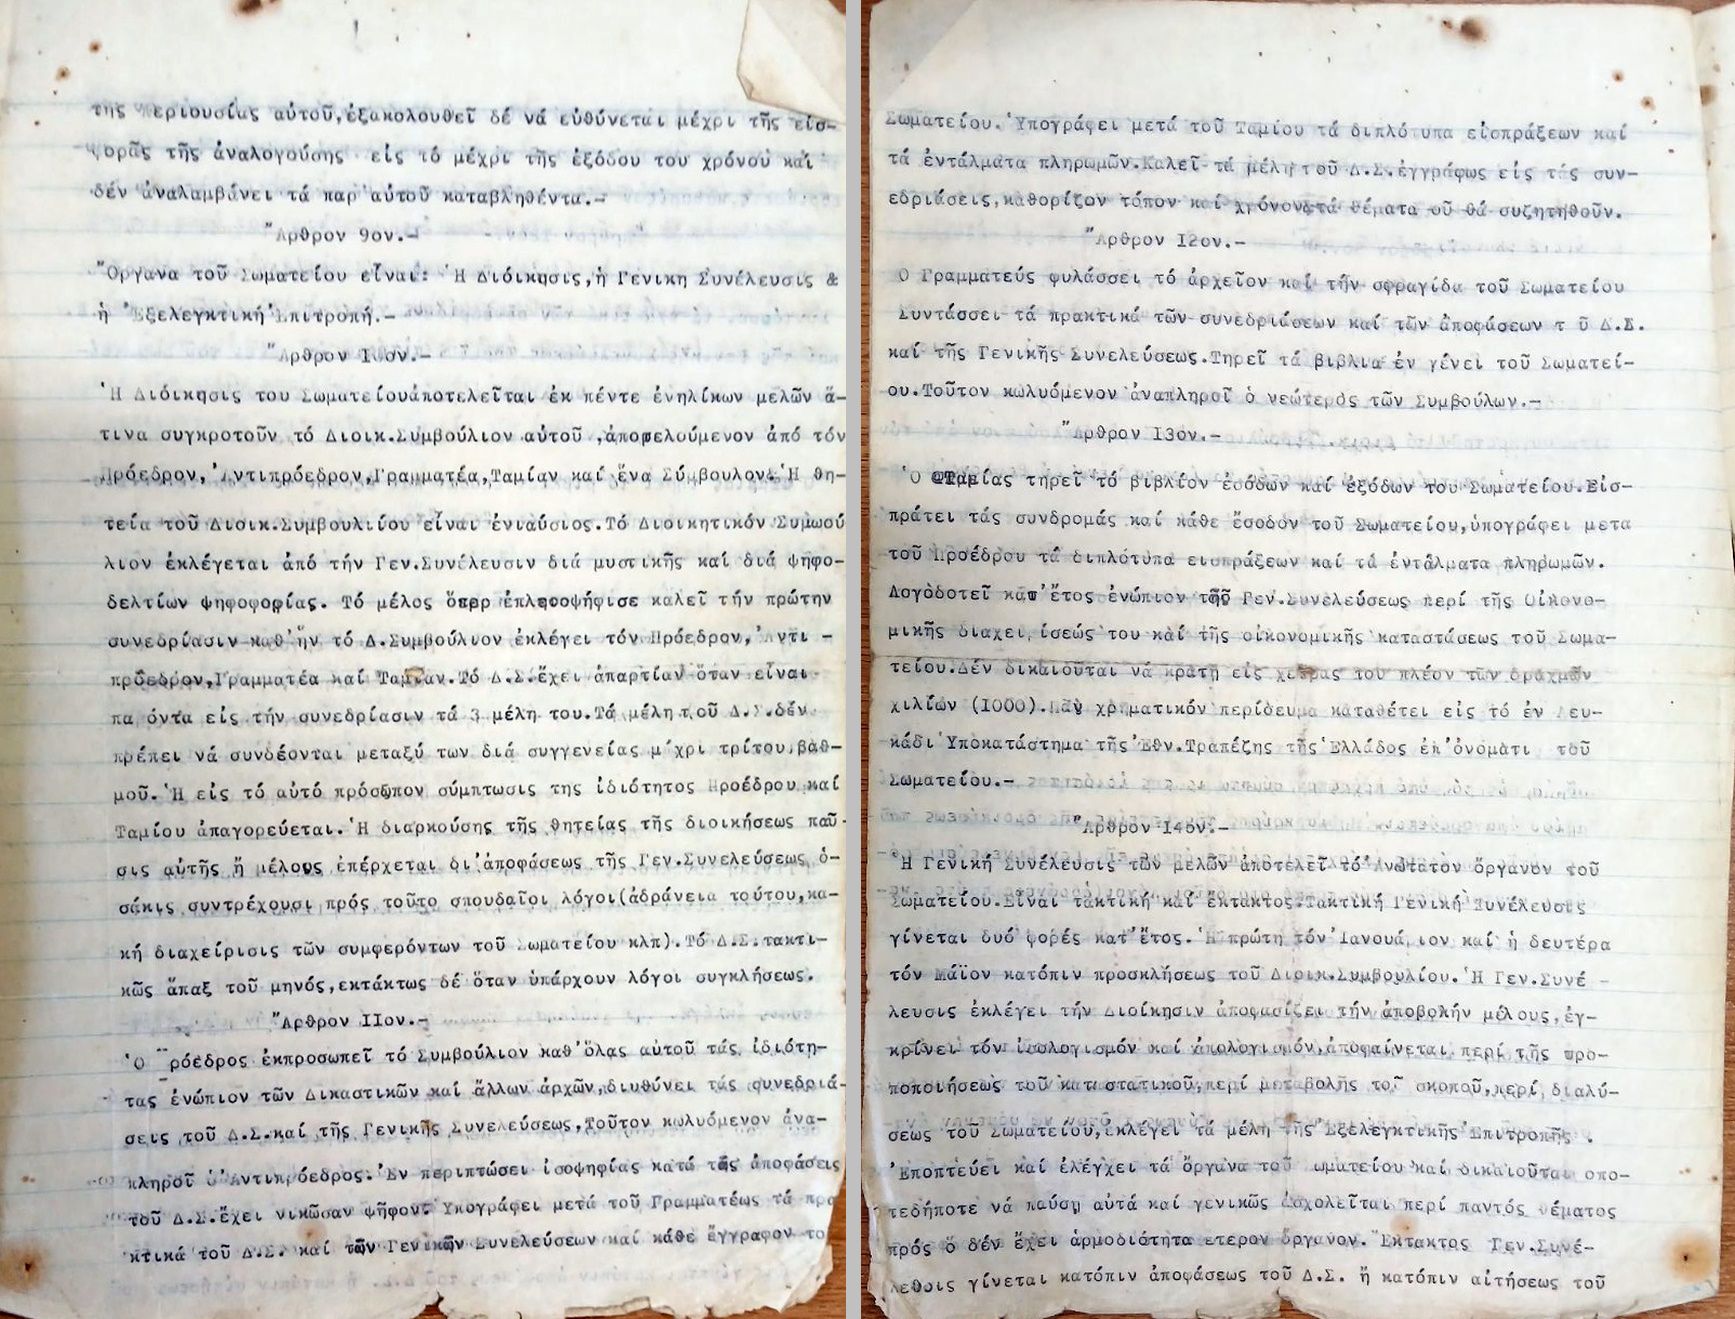 της περιουσίας αὐτοῦ,ἐξακολουθεῖ δέ νά εὐθύνεται μέχρι τῆς εἰσ-
φορᾶς τῆς ἀναλογούσης εἰς τό μέχρι τῆς ἐξόδου του χρόνου καί
δέν ἀναλαμβάνει τά παρ'αὐτοῦ καταβληθέντα.-
Ἄρθρον 9ον.-
Ὄργανα τοῦ Σωματείου εἶναι: Ἡ Διόικησις,ἡ Γενικη Συνέλευσις &
ἡ Ἐξελεγκτική Ἐπιτροπή.-
Ἄρθρον Ι0ον.-
Ἡ Διόικησις του Σωματείουἀποτελεῖται ἐκ πέντε ἐνηλίκων μελῶν ἅ-
τινα συγκροτοῦν τό Διοικ.Συμβούλιον αὐτοῦ ,ἀποτελούμενον ἀπό τόν
Πρόεδρον,Ἀντιπρόεδρον,Γραμματέα,Ταμίαν καί ἕνα Σύμβουλον. Ἡ θη-
τεία τοῦ Διοικ.Συμβουλιίου εἶναι ἐνιαύσιος.Τό Διοικητικόν Συμωού
λιον ἐκλέγεται ἀπό τήν Γεν.Συνέλευσιν διά μυστικῆς καί διά ψηφο-
δελτίων ψηφοφορίας. Τό μέλος ὅπερ ἐπλειοψήφισε καλεῖ τήν πρώτην
συνεδρίασιν καθ'ἥν τό Δ.Συμβούλιον ἐκλέγει τόν Πρόεδρον,Ἀντι -
πρόεδρον,Γραμματέα καί Ταμίαν.Τό Δ.Σ.ἔχει ἀπαρτίαν ὅταν εἶναι
πα όντα εἰς τήν συνεδρίασιν τά 3 μέλη του.Τά μέλη τοῦ Δ.Σ.δέν
πρέπει νά συνδέονται μεταξύ των διά συγγενείας μ χρι τρίτου βαθ-
μοῦ. Ἡ εἰς τό αὐτό πρόσωπον σύμπτωσις της ἰδιότητος Προέδρου καί
Ταμίου ἀπαγορεύεται. Ἡ διαρκούσης τῆς θητείας τῆς διοικήσεως παῦ-
σις αὐτῆς ἤ μέλους ἐπέρχεται δι'ἀποφάσεως τῆς Γεν.Συνελεύσεως ὁ-
σάκις συντρέχουσι πρός τοῦτο σπουδαῖοι λόγοι(ἀδράνεια τούτου,κα-
κή διαχείρισις τῶν συμφερόντων τοῦ Σωματείου κλπ).Τό Δ.Σ.τακτι-
κῶς ἅπαξ τοῦ μηνός,ἐκτάκτως δέ ὅταν ὑπάρχουν λόγοι συγκλήσεως.
Ἄρθρον ΙΙον.-
Ὁ Πρόεδρος ἐκπροσωπεῖ τό Συμβούλιον καθ'ὅλας αὐτοῦ τάς ἰδιότη-
τας ἐνώπιον τῶν Δικαστικῶν καί ἄλλων ἀρχῶν,διυθύνει τάς συνεδριά-
σεις τοῦ Δ.Σ.καί τῆς Γενικῆς Συνελεύσεως,Τοῦτον κωλυόμενον ἀνα-
πληροῖ ὁ Ἀντιπρόεδρος. Ἐν περιπτώσει ἰσοψηφίας κατά τάς ἀποφάσεις
τοῦ Δ.Σ.ἔχει νικῶσαν ψῆφον. Ὑπογράφει μετά τοῦ Γραμματέως τά πρα
κτικά τοῦ Δ.Σ. καί τῶν Γενικῶν Συνελεύσεων καί κάθε ἔγγραφον το
Σωματείου. Ὑπογράφει μετά τοῦ Ταμίου τά διπλότυπα εἰσπράξεων καί
τά ἐντάλματα πληρωμῶν.Καλεῖ τά μέλη τοῦ Δ.Σ.ἐγγράφως εἰς τάς συν-
εδριάσεις,καθορίζον τόπον καί χρόνον,τά θέματα οῦ θά συζητηθοῦν.
Ἄρθρον Ι2ον.-
Ο Γραμματεύς φυλάσσει τό ἀρχεῖον καί τήν σφραγίδα τοῦ Σωματείου
Συντάσσει τά πρακτικά τῶν συνεδριάσεων καί τῶν ἀποφάσεων τ ῦ Δ.Σ.
καί τῆς Γενικῆς Συνελεύσεως.Τηρεῖ τά βιβλια ἐν γένει τοῦ Σωματεί-
ου.Τοῦτον κωλυόμενον ἀναπληροῖ ὁ νεώτερος τῶν Συμβούλων.-
Ἄρθρον Ι3ον.-
Ὁ Ταμίας τηρεῖ τό βιβλίον ἐσόδων καί ἐξόδων του Σωματείου.Εἰσ-
πράτει τάς συνδρομάς καί κάθε ἔσοδον τοῦ Σωματείου,ὑπογράφει μετα
τοῦ Προέδρου τά διπλότυπα εισπράξεων καί τά ἐντάλματα πληρωμῶν.
Λογοδοτεῖ κατ'ἔτος ἐνώπιον τῆς Γεν.Συνελεύσεως περί τῆς Οἰκονο-
μικῆς διαχει,ίσεώς του καί τῆς οἰκονομικῆς καταστάσεως τοῦ Σωμα-
τείου.Δέν δικαιοῦται νά κρατῇ εἰς χεῖρας του πλέον τῶν δραχμῶν
χιλίων (Ι000).Πᾶν χρηματικόν περίσευμα καταθέτει εἰς τό ἐν Λευ-
κάδι Ὑποκατάστημα τῆς Ἐθν.Τραπέζης τῆς Ἑλλάδος ἐπ'ὀνόματι τοῦ
Σωματείου.-
Ἄρθρον Ι4ον.-
Ἡ Γενική Συνέλευσις τῶν μελῶν ἀποτελεῖ τό Ἀνώτατον ὄργανον τοῦ
Σωματείου.Εἶναι τακτική καί ἔκτακτος.Τακτική Γενική Συνέλευσις
γίνεται δυό φορές κατ'ἔτος. Ἡ πρώτη τόν Ἰανουά,ιον καί ἡ δευτέρα
τόν Μάϊον κατόπιν προσκλήσεως τοῦ Διοικ.Συμβουλίου. Ἡ Γεν.Συνέ -
λευσις ἐκλέγει τήν Διοίκησιν ἀποφασίζει τήν ἀποβολήν μέλους,ἐγ-
κρίνει τόν ἰσολογισμόν καί ἀπολογισμόν,ἀποφαίνεται περί τῆς τρο-
ποποιήσεως τοῦ καταστατικοῦ,περί μεταβολῆς τοῦ σκοποῦ,περί διαλύ-
σεως τοῦ Σωματείου,ἐκλέγει τά μέλη τῆς Ἐξελεγκτικῆς Ἐπιτροπῆς .
Ἐποπτεύει καί ἐλέγχει τά ὄργανα τοῦ ωματείου καί δικαιοῦται οπο-
τεδήποτε νά παύσῃ αὐτά καί γενικῶς ἀσχολεῖται περί παντός θέματος
πρός ὅ δέν ἔχει ἁρμοδιότητα ετερον ὄργανον. Ἔκτακτος Γεν.Συνέ-
λεθσις γίνεται κατόπιν ἀποφάσεως τοῦ Δ.Σ. ἤ κατόπιν αἰτήσεως τοῦ